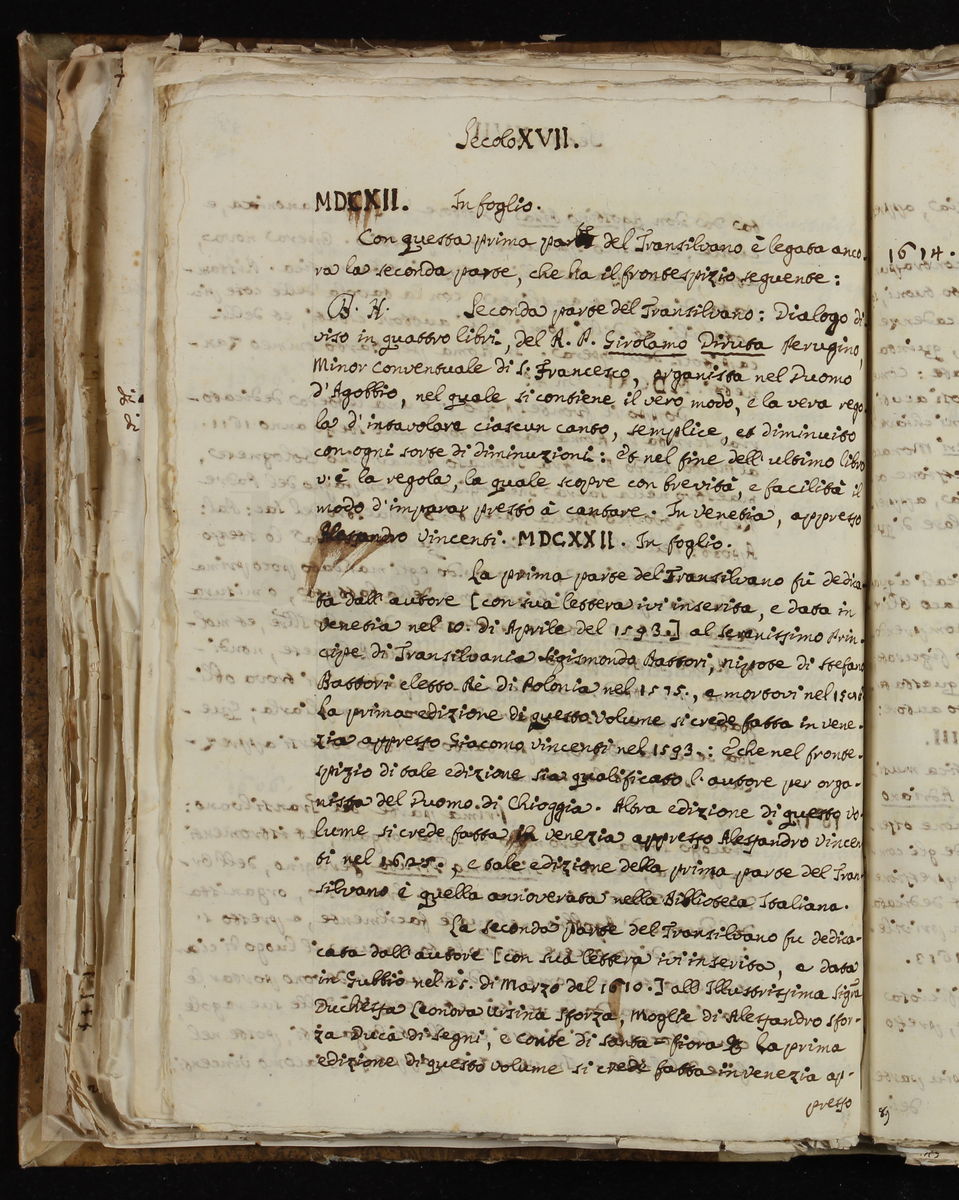 Secolo XVII.
MDCXII. In foglio.
Con questa prima parte del Transilvano è legata anco-
ra la seconda parte, che ha il frontespizio seguente:
Seconda parte del Transilvano: Dialogo di
viso in quattro libri, del R. P. Girolamo Diruta Perugino,
Minor Conventuale di S. Francesco, organista nel Duomo
d'Agobbio, nel quale si contiene il vero modo, e la vera rego
la d'intavolare ciascun canto, semplice, et diminuito
con ogni sorte di diminuzioni: Et nel fine dell'ultimo libro
v'è la regola, la quale scopre con brevità, e facilità il
modo d'imparar presto à cantare. In Venetia, appresso
Alessandro Vincenti. MDCXXII. In foglio.
La prima parte del Transilvano fù dedica-
ta dall'autore [con sua lettera ivi inserita, e data in
Venetia nel 10. di Aprile del 1593.] al Serenissimo Prin-
cipe di Transilvania Sigismondo Battori, nipote di Stefano
Battori eletto Rè di Polonia nel 1575., e mortovi nel
La prima edizione di questo volume si crede fatta in Vene-
zia appresso Giacomo Vincenti nel 1593.: E che nel fronte-
spizio di tale edizione sia qualificato l'autore per orga-
nista del Duomo di Chioggia. Altra edizione di questo vo-
lume si crede fatta in Venezia appresso Alessandro Vincen
ti nel 1625., e tale edizione della prima parte del Tran-
silvano è quella annoverata nella Biblioteca Italiana.
La seconda parte del Transilvano fu dedica-
cata dall'autore [con sua lettera ivi inserita, e data
in Gubbio nel 25. di Marzo del 1610.] all'Illustrissima Sigra
Duchessa Leonora Ursina Sforza, Moglie di Alessandro Sfor-
za Duca di Segni, e Conte di Santa=fiora. La prima
edizione di questo volume si crede fatta in Venezia ap-
presso
di
di
1614.
89